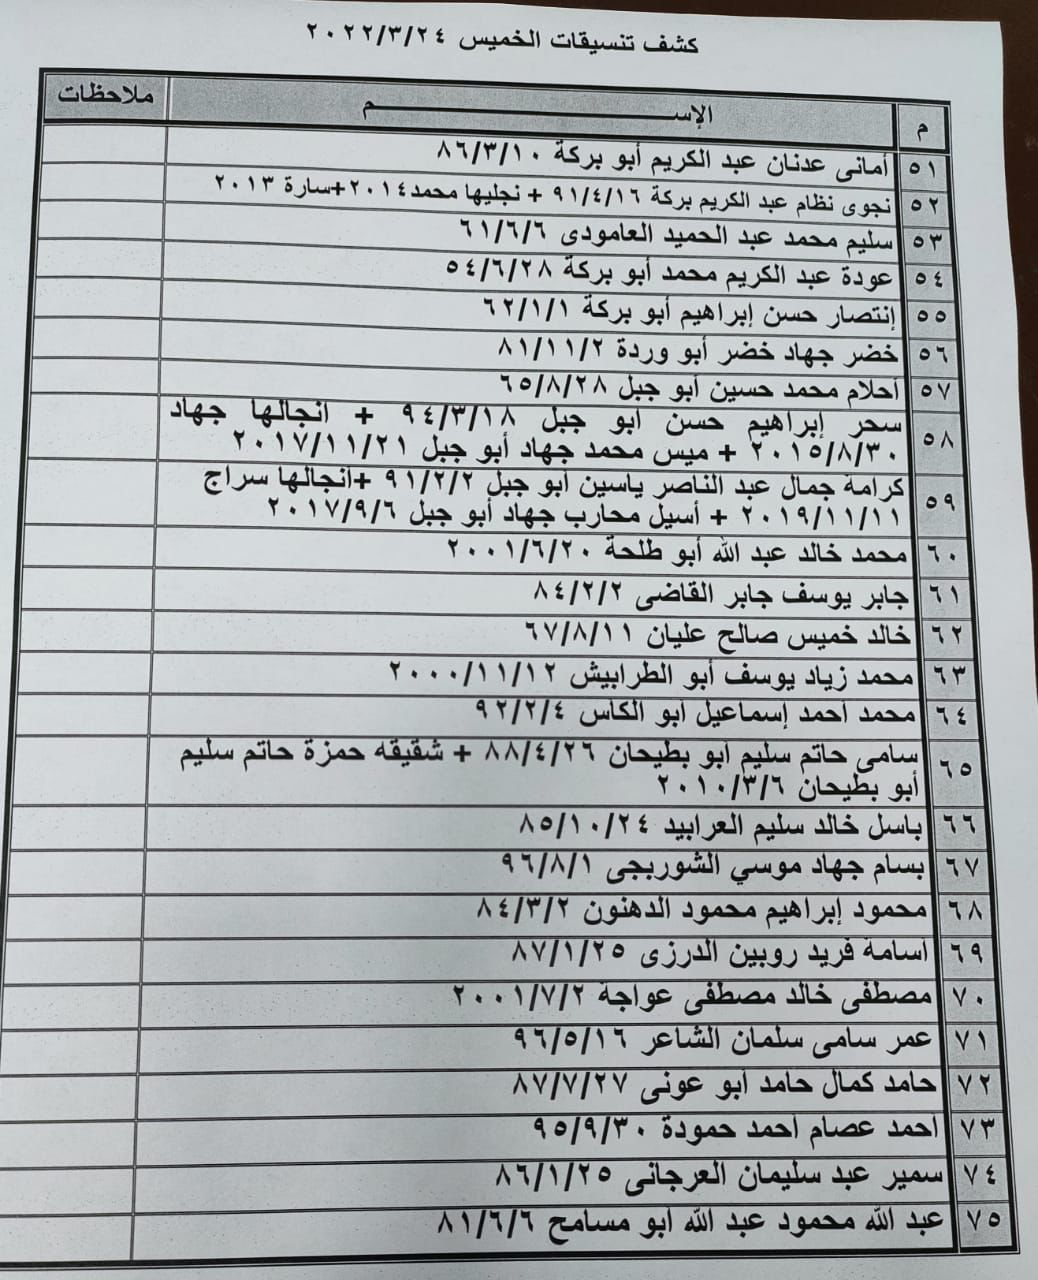 كشف تنسيقات الخميس ٢٠٢٢/٣/٢٤
م الإســــــم ملاحظات
٥١ أمانى عدنان عبد الكريم أبو بركة ٨٦/٣/١٠
٥٢ نجوى نظام عبد الكريم بركة ٩١/٤/١٦ + نجليها محمد٢٠١٤+سارة ٢٠١٣
٥٣ سليم محمد عبد الحميد العامودى ٦١/٦/٦
٥٤ عودة عبد الكريم محمد أبو بركة ٥٤/٦/٢٨
٥٥ إنتصار حسن إبراهيم أبو بركة ٦٢/١/١
٥٦ خضر جهاد خضر أبو وردة ٨١/١١/٢
٥٧ أحلام محمد حسين أبو جبل ٦٥/٨/٢٨
٥٨ سحر إبراهيم حسن أبو جبل ٩٤/٣/١٨ + أنجالها جهاد
٢٠١٥/٨/٣٠ + ميس محمد جهاد أبو جبل ٢٠١٧/١١/٢١
٥٩ كرامة جمال عبد الناصر ياسين أبو جبل ٩١/٢/٢ +أنجالها سراج
٢٠١٩/١١/١١ + أسيل محارب جهاد أبو جبل ٢٠١٧/٩/٦
٦٠ محمد خالد عبد الله أبو طلحة ٢٠٠١/٦/٢٠
٦١ جابر يوسف جابر القاضى ٨٤/٢/٢
٦٢ خالد خميس صالح عليان ٦٧/٨/١١
٦٣ محمد زياد يوسف أبو الطرابيش ٢٠٠٠/١١/١٢
٦٤ محمد أحمد إسماعيل أبو الكاس ٩٢/٢/٤
٦٥ سامى حاتم سليم أبو بطيحان ٨٨/٤/٢٦ + شقيقه حمزة حاتم سليم
أبو بطيحان ٢٠١٠/٣/٦
٦٦ باسل خالد سليم العرابيد ٨٥/١٠/٢٤
٦٧ بسام جهاد موسي الشوربجى ٩٦/٨/١
٦٨ محمود إبراهيم محمود الدهنون ٨٤/٣/٢
٦٩ أسامة فريد روبين الدرزى ٨٧/١/٢٥
٧٠ مصطفى خالد مصطفى عواجة ٢٠٠١/٧/٢
٧١ عمر سامى سلمان الشاعر ٩٦/٥/١٦
٧٢ حامد كمال حامد أبو عونى ٨٧/٧/٢٧
٧٣ أحمد عصام أحمد حمودة ٩٥/٩/٣٠
٧٤ سمير عبد سليمان العرجانى ٨٦/١/٢٥
٧٥ عبد الله محمود عبد الله أبو مسامح ٨١/٦/٦